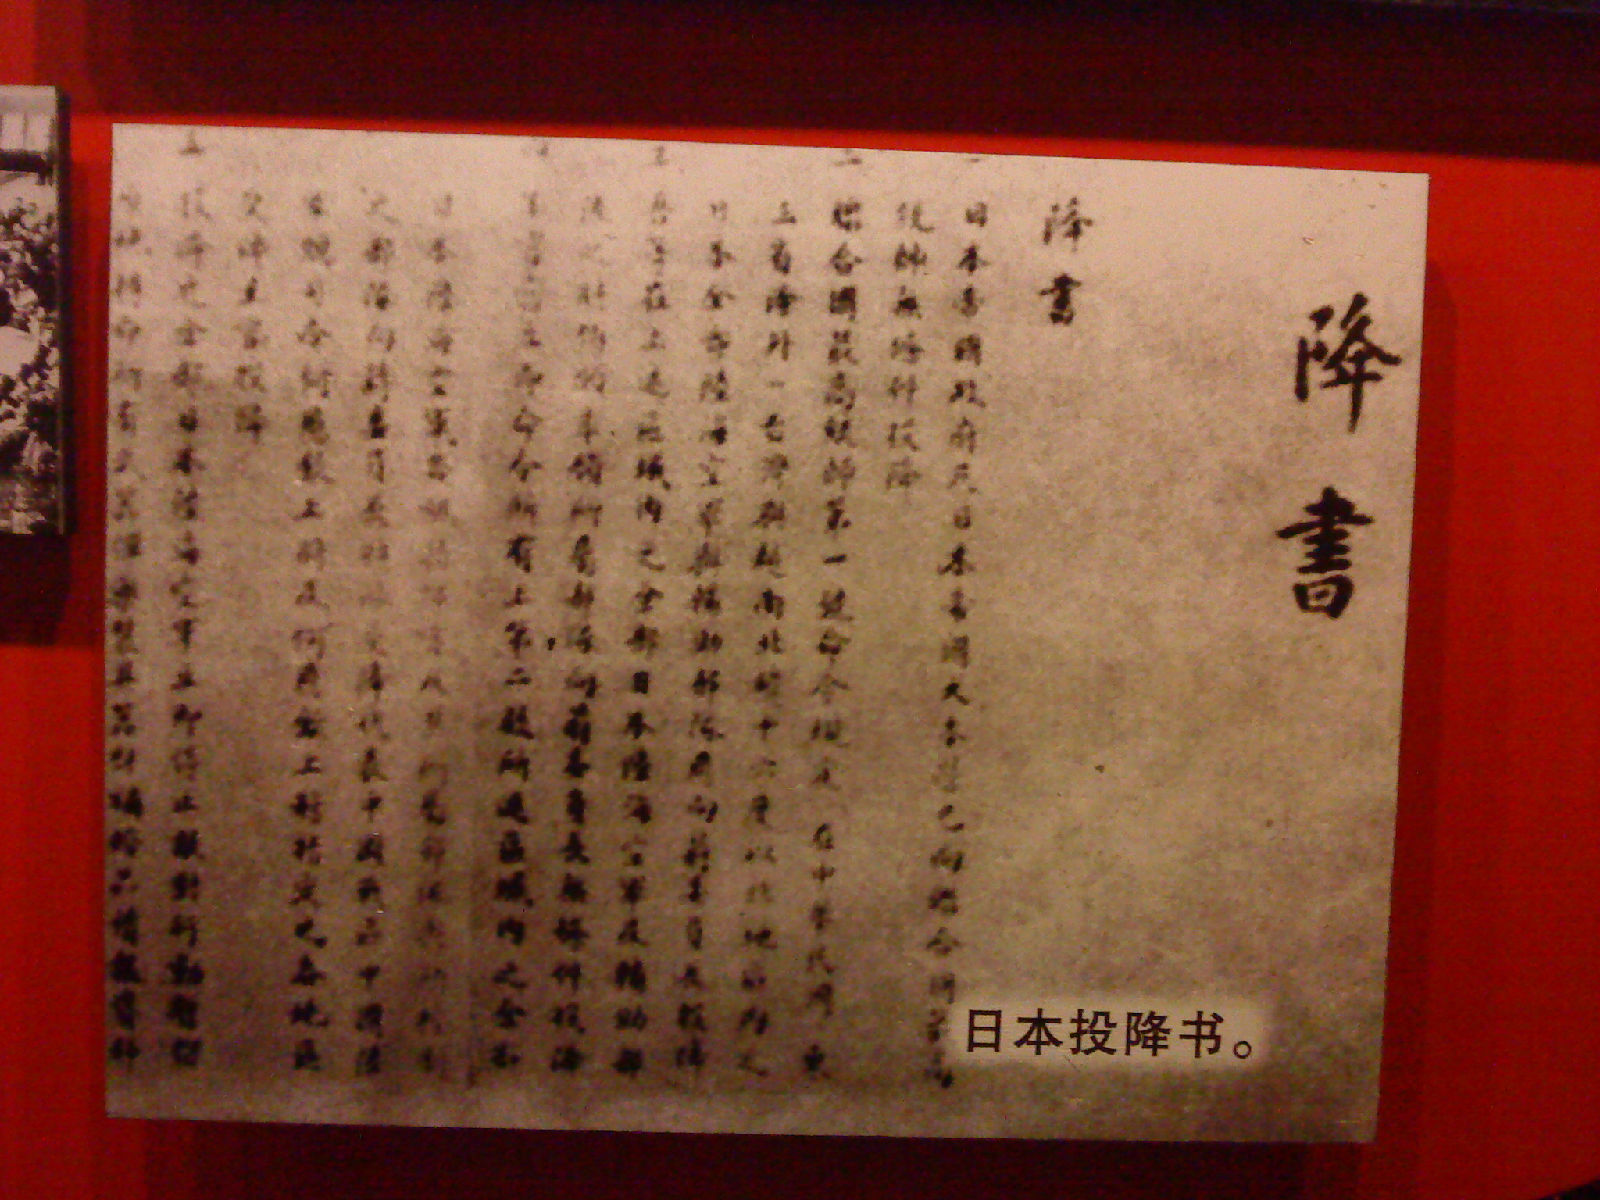 降書
降書
一 日本帝國政府及日本帝國大本營已向聯合國最高
統帥無條件投降
二 聯合國最高統帥第一號命令規定 在中華民國 東
三省除外 台灣與越南北緯十六度以北地區內之
日本全部陸海空軍與輔助部隊應向蔣委員長投降
三 吾等在上述區域內之全部日本陸海空軍及輔助部
隊之將領 率領所屬部隊向蔣委員長無條件投降
本官當立即命令所有上第二款所述區域內之全部
日本陸海空軍各級
之部隊向蔣委員長特派受降代表中國戰區中國陸
軍總司令何應欽上將及何應欽上將指定之各地區
受降主官投降
投降之全部日本陸海空軍立即停止敵對行動暫留
原地待命所有武器彈藥裝具器材補給品情報資料
日本投降书。